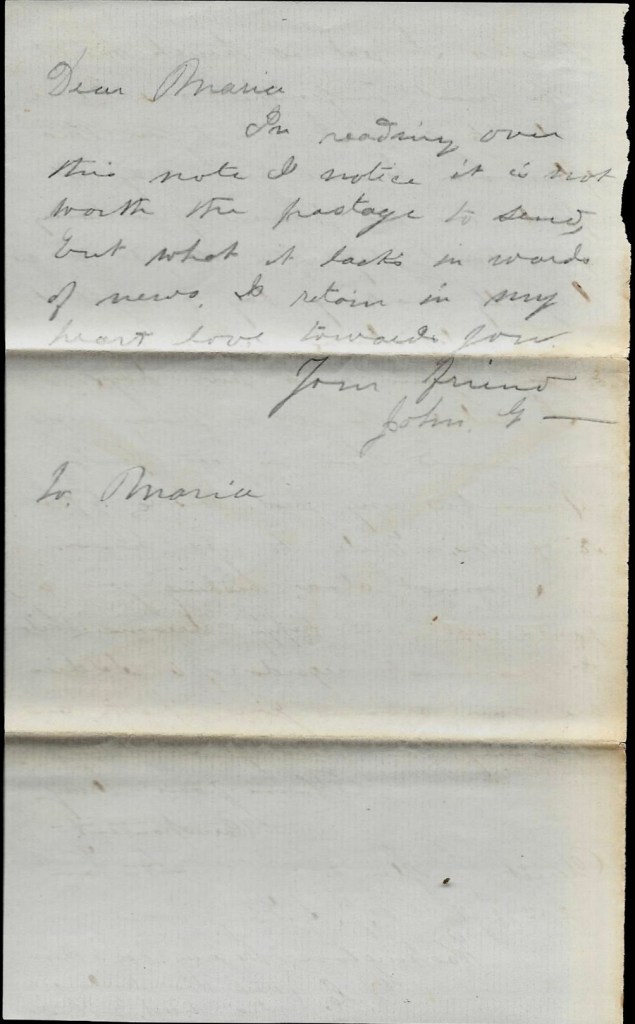 Dear Maria
In reading over
this note I notice it is not
worth the postage to send,
but what it lacks in words
of news, I retain in my
heart love towards you
Your friend
John. G —
to. Maria